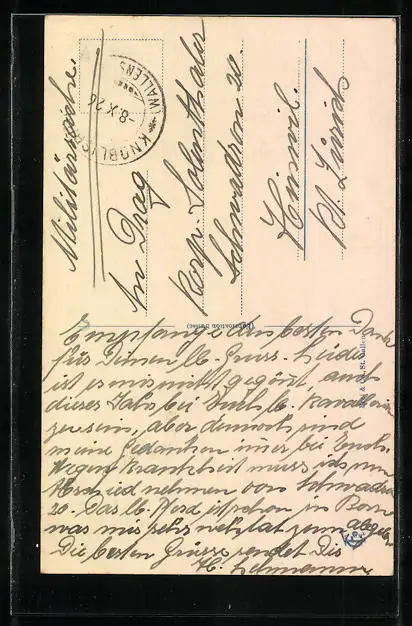 Militärsache.
An Drag
Korp. Schwadron 20.
Hinwil.
Kt. Zürich
KNOBLIS WALLENS
-8.X.26
Empfange den besten Dank
für Deinen lb. Gruss. Leider
ist es mir nicht gegönnt, auch
dieses Jahr bei Euch lb. Kavallerie
zu sein, aber dennoch sind
meine Gedanken immer bei Euch.
Wegen Krankheit muss ich nun
Abschied nehmen von Schwadron
20. Das lb. Pferd ist schon in Bern
was mir sehr weh tat zum abgeben
Die besten Grüsse sendet Dir
H. Lehmann